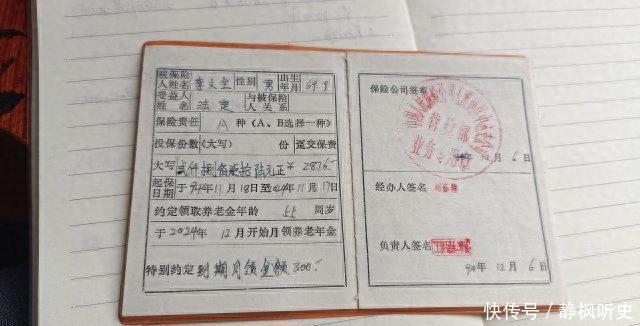 被保险人姓名 李文全 性别 男 出生年月 69.9
受益人姓名 法定 与被保险人关系
保险责任 A 种（A、B选择一种）
投保份数（大写） 份 趸交保费
大写 贰仟捌佰柒拾陆元正 ¥ 2876.-
起保日期 于94年11月18日至24年11月17日
约定领取养老金年龄 55 周岁
于2024年12月开始月领养老年金
特别约定 到期月领金额300.-
保险公司签章
业务专用章
94年12月6日
经办人签名 刘春梅
负责人签名
94年12月6日
快传号 / 静枫听史